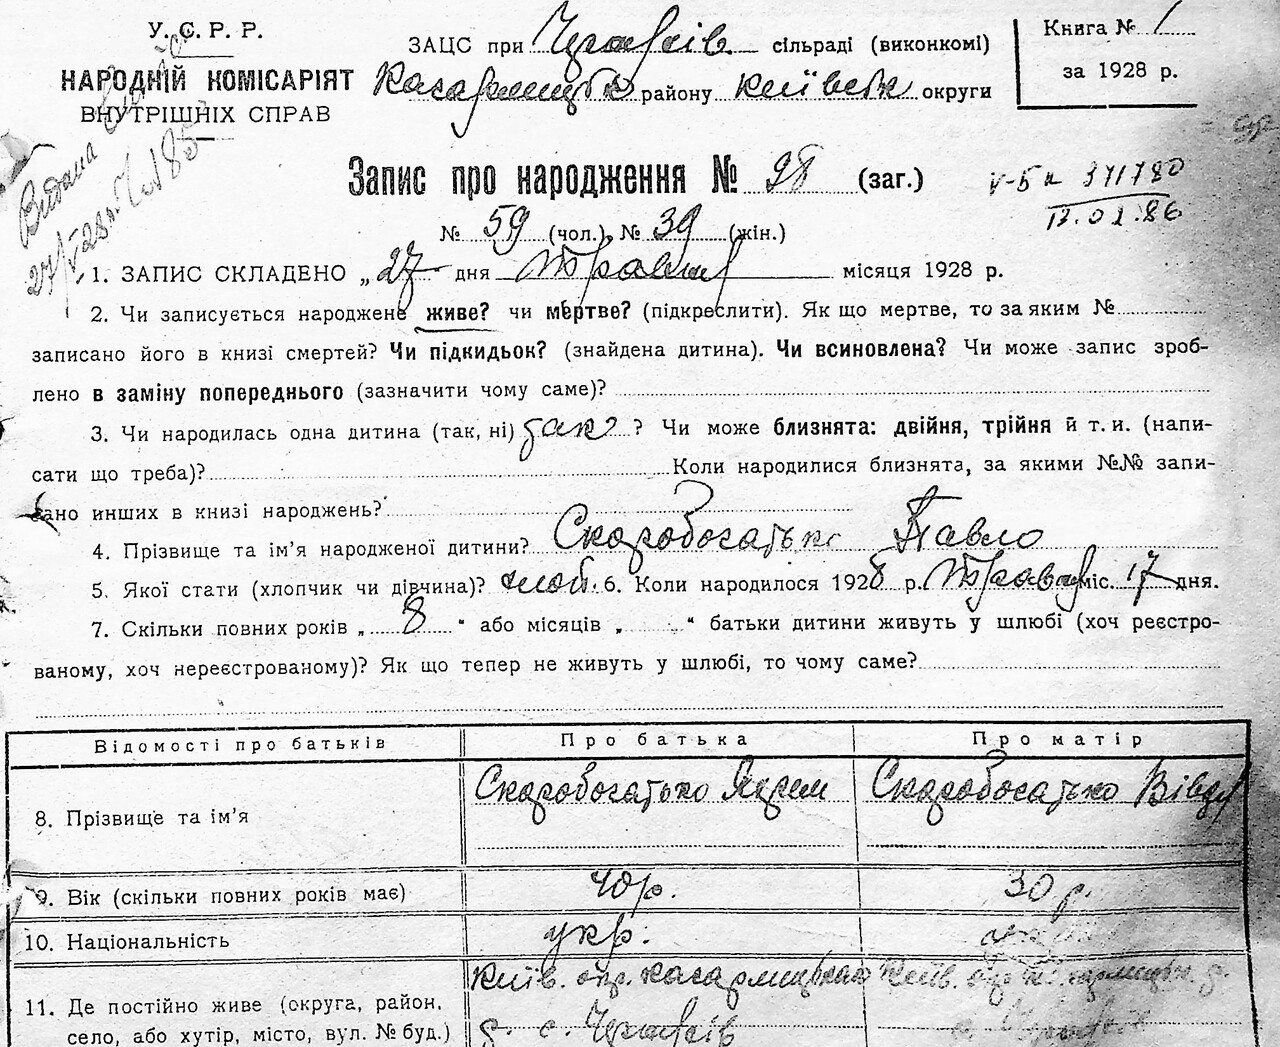 У. С. Р. Р.
НАРОДНІЙ КОМІСАРІЯТ
ВНУТРІШНІХ СПРАВ
ЗАЦС при сільраді (виконкомі)
району київськ округи
Книга № 1
за 1928 р.
Видана
Запис про народження № 98 (заг.)
№ 59 (чол.), № 39 (жін.)
V-БК 371780
1. ЗАПИС СКЛАДЕНО „27" дня Травня місяця 1928 р.
2. Чи записується народжене живе? чи мертве? (підкреслити). Як що мертве, то за яким №
записано його в книзі смертей? Чи підкидьок? (знайдена дитина). Чи всиновлена? Чи може запис зроб-
лено в заміну попереднього (зазначити чому саме)?
3. Чи народилась одна дитина (так, ні) так ? Чи може близнята: двійня, трійня й т. и. (напи-
сати що треба)? Коли народилися близнята, за якими №№ запи-
сано инших в книзі народжень?
4. Прізвище та ім'я народженої дитини? Скоробогатько Павло
5. Якої стати (хлопчик чи дівчина)? хлоп. 6. Коли народилося 1928 р. Травня міс. 17 дня.
7. Скільки повних років „ 8 " або місяців „ " батьки дитини живуть у шлюбі (хоч реєстро-
ваному, хоч нереєстрованому)? Як що тепер не живуть у шлюбі, то чому саме?
Відомості про батьків Про батька Про матір
8. Прізвище та ім'я Скоробогатько Яхрем Скоробогатько Вівдя
9. Вік (скільки повних років має) 40 р. 30 р.
10. Національність укр.
11. Де постійно живе (округа, район, Київ. окр. Київ. окр.
село, або хутір, місто, вул. № буд.) р. с.